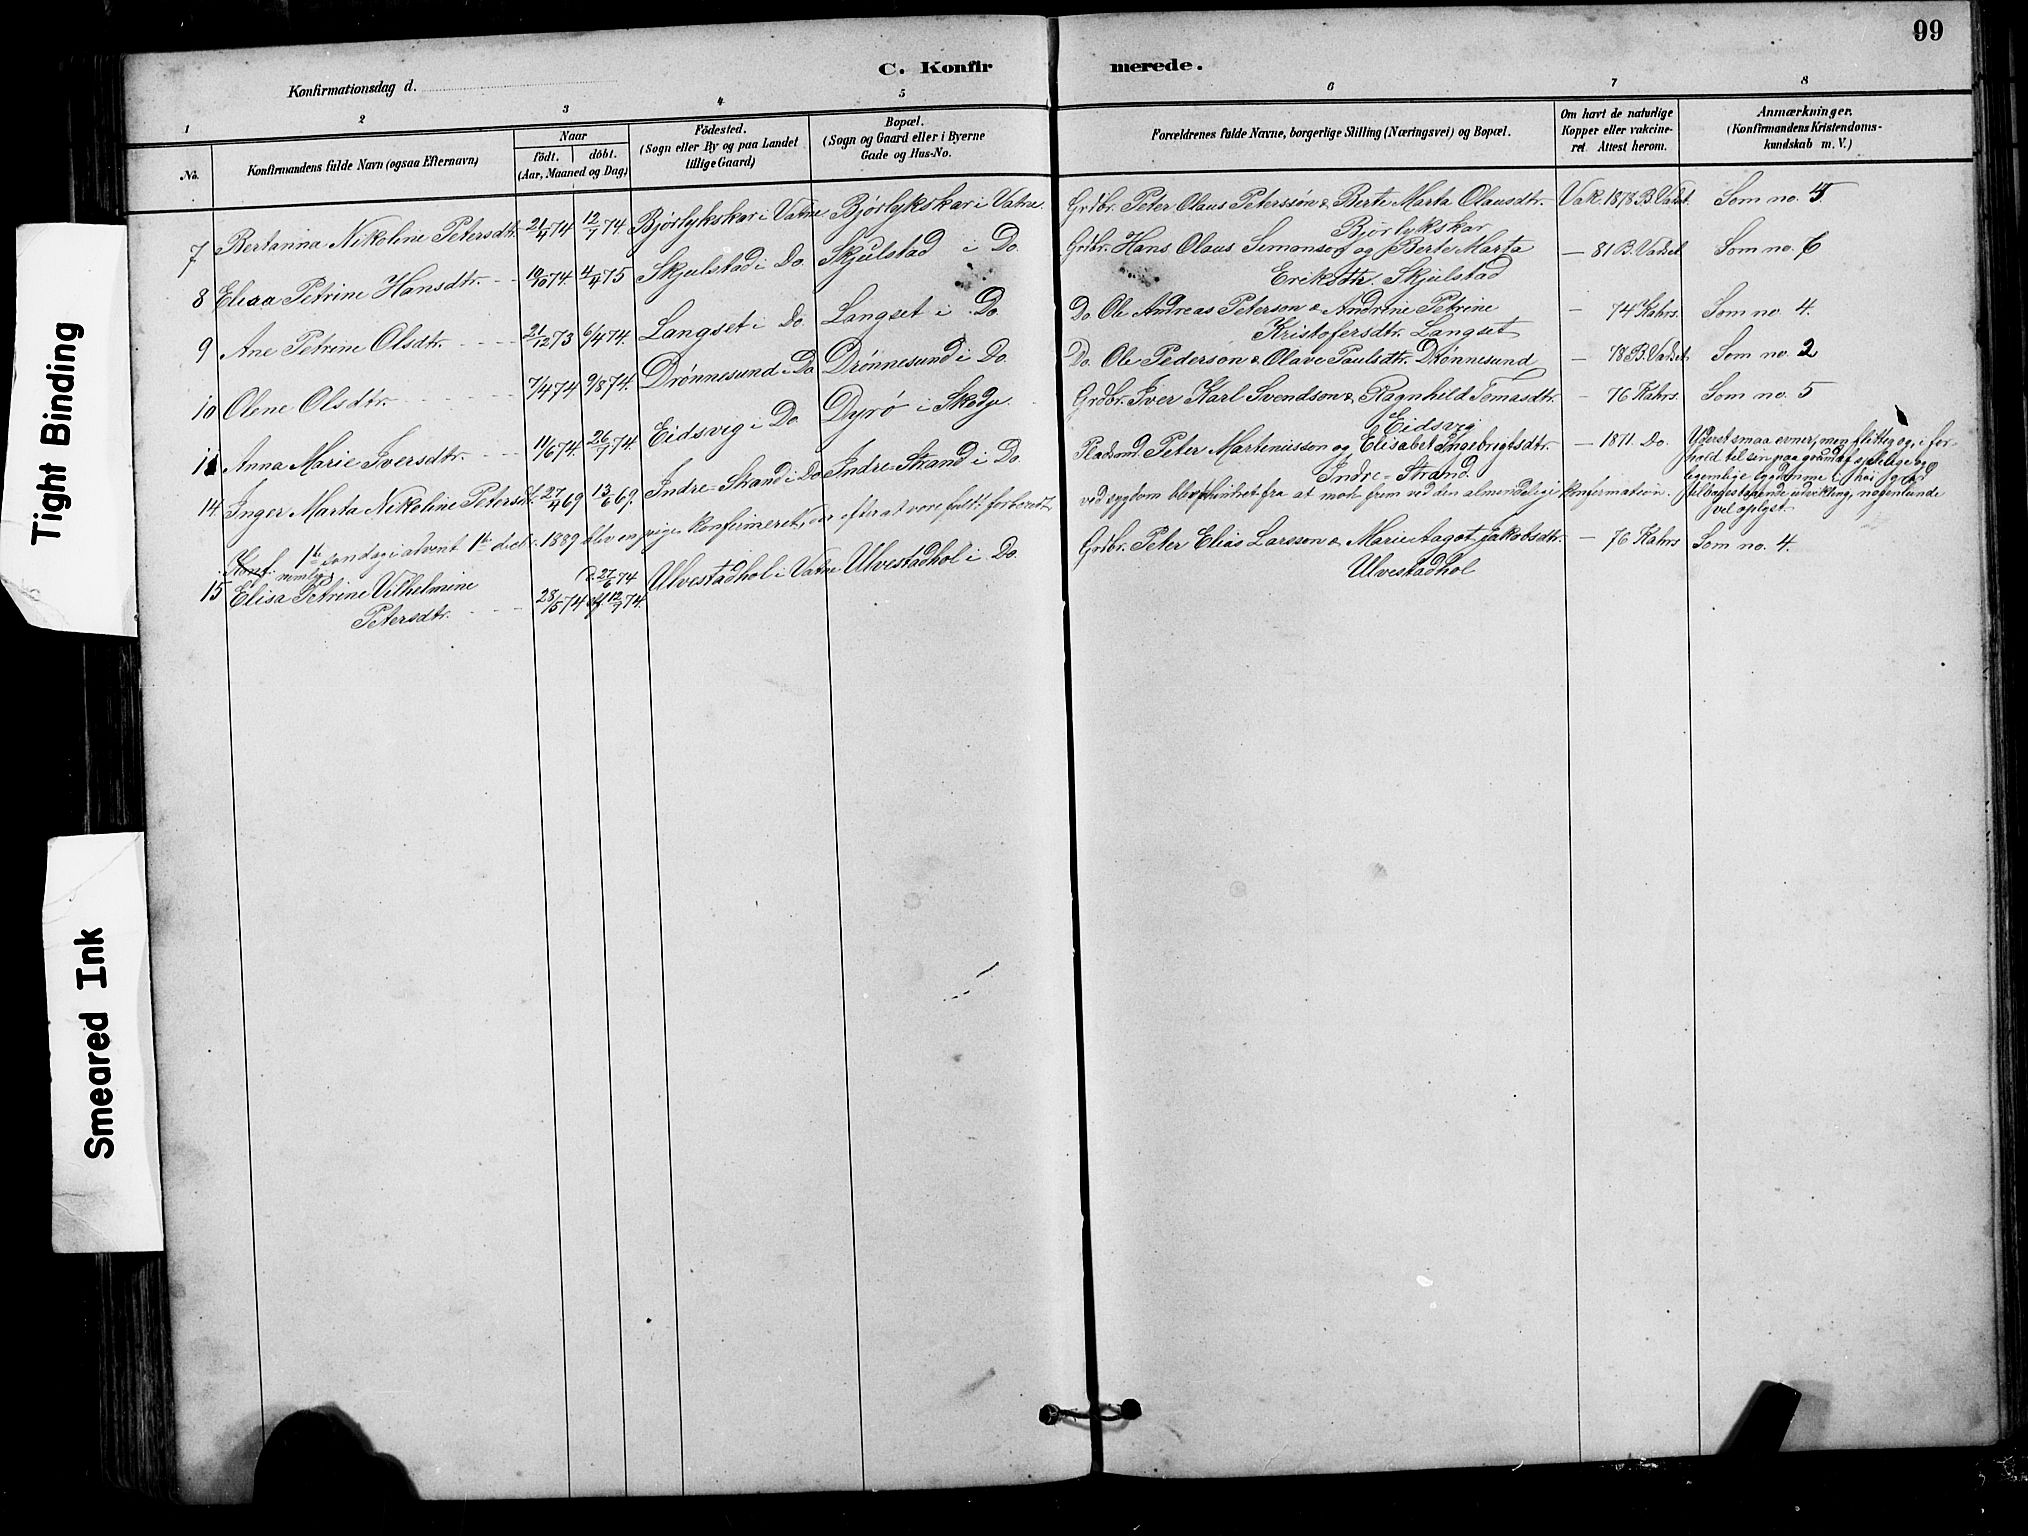 99
C. Konfirmerede.
Konfirmationsdag d.
1 2 3 4 5 6 7 8
No.
Konfirmandens fulde Navn (ogsaa Efternavn)
Naar
født. döbt.
(Aar, Maaned og Dag)
Födested.
(Sogn eller By og paa Landet
tillige Gaard)
Bopæl.
(Sogn og Gaard eller i Byerne
Gade og Hus-No.
Forældrenes fulde Navne, borgerlige Stilling (Næringsvei) og Bopæl.
Om havt de naturlige
Kopper eller vakcine-
ret. Attest herom.
Anmærkninger.
(Konfirmandens Kristendoms-
kundskab m. V.)
7 Bertanna Nikoline Petersdtr. 21/4 74 12/7 74 Bjørlykskar i Vatne Bjørlykskar i Vatne. Grdbr. Peter Olaus Peterssøn & Berte Marta Olausdtr. Vak. 1878 B. Vadset Som no. 5
Bjørlykskar
8 Elisa Petrine Hansdtr. 19/10 74. 4/4 75 Skjelstad i Do. Skjelstad i Do. Grdbr. Hans Olaus Simonson og Berte Marta — 81 B. Vadset Som no. 6
Eriksdtr. Skjelstad
9 Ane Petrine Olsdtr. 21/12 73 6/4 74. Langset i Do. Langset i Do. Do. Ole Andreas Peterson & Andrine Petrine — 74 Kahrs. Som no. 4.
Kristofersdtr. Langset
10 Olene Olsdtr. 7/4 74 9/8 74. Drønnesund i Do Drønnesund i Do. Do. Ole Pederson & Olave Paulsdtr. Drønnesund — 78 B. Vadset Som no. 2
11 Anna Marie Iversdtr. 11/6 74. 26/7 74. Eidsvig i Do. Dyrø i Skodje. Grdbr. Iver Karl Svendson & Ragnhild Tomasdtr. — 76 Kahrs. Som no. 5
Eidsvig
14 Inger Marta Nikoline Petersdt. 27/4 69 13/6 69. Indre-Strand i Do Indre-Strand i Do. Pladsmd. Peter Martinusson og Elisabet Ingebrigtsdtr. — 1871. Do. Yderst smaa evner, men flittig og, i for-
Indre-Strand.
hold til sin paa grund af sjelelige og
legemlige sygdomme i høi grad
tilbagestaaende udvikling, nogenlunde
vel oplyst.
Konf. nemlig 1ste søndag i advent 1ste decbr. 1889 blev en pige konfirmeret, der efter at være fuldt forberedt, ved sygdom blev hindret fra at møde frem ved den almindelige konfirmation.
15 Elisa Petrine Vilhelmine 28/5 74 d. 27/6 74 Ulvestadhol i Vatne Ulvestadhol i Do. Grdbr. Peter Elias Larsson & Marie Aagot Jakobsdtr. — 76 Kahrs Som no. 4.
Petersdtr. 12/7 74. Ulvestadhol
Tight Binding
Smeared Ink